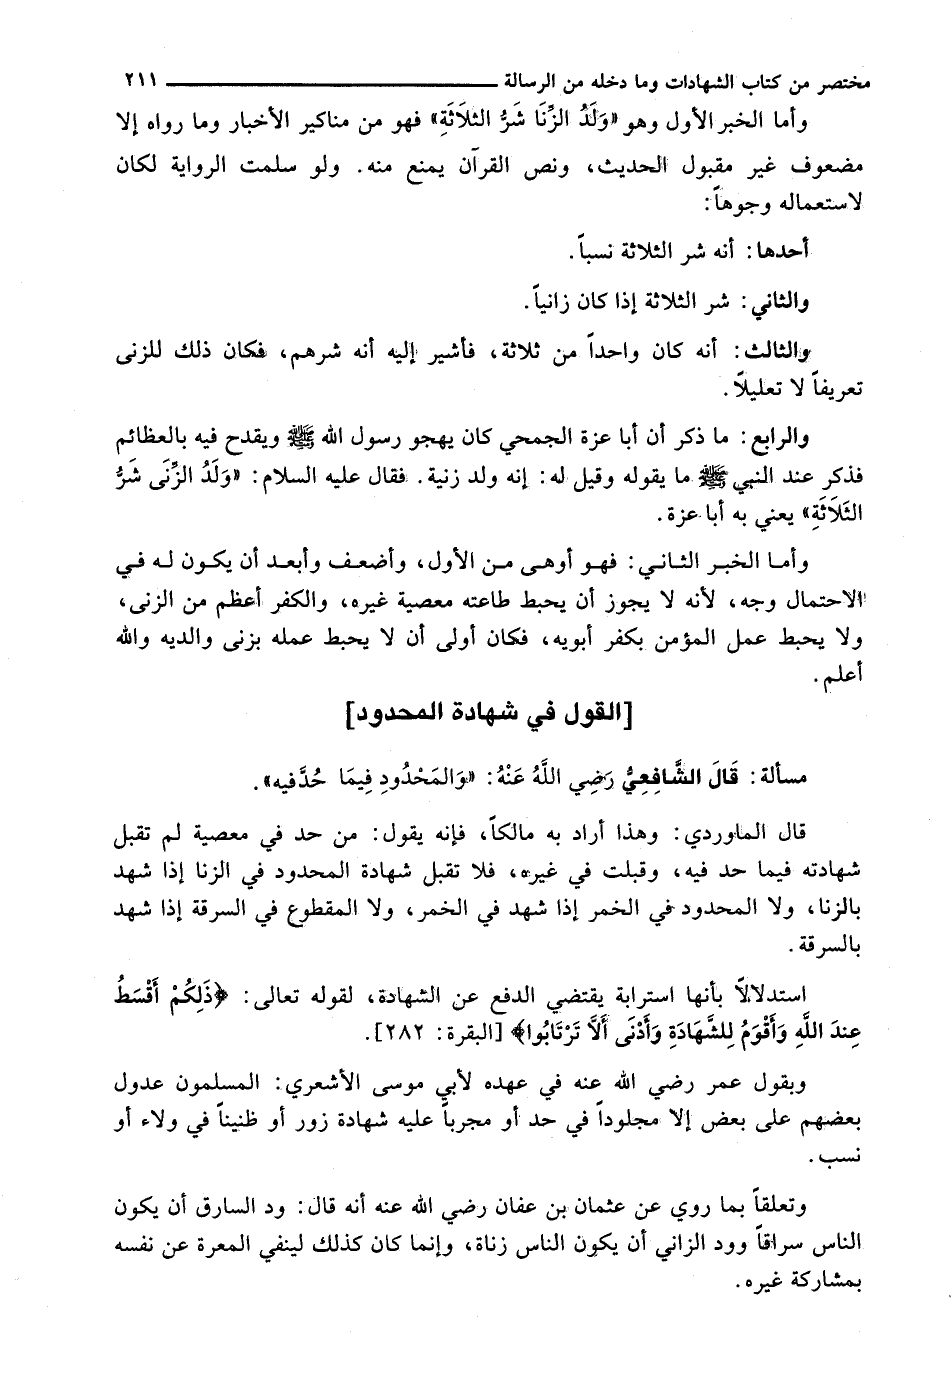 مختصر من كتاب الشهادات وما دخله من الرسالة ٢١١
وأما الخبر الأول وهو «وَلَدُ الزِّنَا شَرُّ الثلَاثَةِ» فهو من مناكير الأخبار وما رواه إلا
مضعوف غير مقبول الحديث، ونص القرآن يمنع منه. ولو سلمت الرواية لكان
لاستعماله وجوهاً:
أحدها: أنه شر الثلاثة نسباً.
والثاني: شر الثلاثة إذا كان زانياً.
والثالث: أنه كان واحداً من ثلاثة، فأشير إليه أنه شرهم، فكان ذلك للزنى
تعريفاً لا تعليلاً.
والرابع: ما ذكر أن أبا عزة الجمحي كان يهجو رسول الله ﷺ ويقدح فيه بالعظائم
فذكر عند النبي ﷺ ما يقوله وقيل له: إنه ولد زنية. فقال عليه السلام: «وَلَدُ الزِّنَى شَرُّ
الثَلَاثَةِ» يعني به أبا عزة.
وأما الخبر الثاني: فهو أوهى من الأول، وأضعف وأبعد أن يكون له في
الاحتمال وجه، لأنه لا يجوز أن يحبط طاعته معصية غيره، والكفر أعظم من الزنى،
ولا يحبط عمل المؤمن بكفر أبويه، فكان أولى أن لا يحبط عمله بزنى والديه والله
أعلم.
[القول في شهادة المحدود]
مسألة: قَالَ الشَّافِعِيُّ رَضِي اللَّهُ عَنْهُ: «وَالمَحْدُودِ فِيمَا حُدَّفيه».
قال الماوردي: وهذا أراد به مالكاً، فإنه يقول: من حد في معصية لم تقبل
شهادته فيما حد فيه، وقبلت في غيره، فلا تقبل شهادة المحدود في الزنا إذا شهد
بالزنا، ولا المحدود في الخمر إذا شهد في الخمر، ولا المقطوع في السرقة إذا شهد
بالسرقة.
استدلالاً بأنها استرابة يقتضي الدفع عن الشهادة، لقوله تعالى: ﴿ذَلِكُمْ أَقْسَطُ
عِندَ اللَّهِ وَأَقْوَمُ لِلشَّهَادَةِ وَأَدْنَى أَلَّا تَرْتَابُوا﴾ [البقرة: ٢٨٢].
وبقول عمر رضي الله عنه في عهده لأبي موسى الأشعري: المسلمون عدول
بعضهم على بعض إلا مجلوداً في حد أو مجرباً عليه شهادة زور أو ظنيناً في ولاء أو
نسب.
وتعلقاً بما روي عن عثمان بن عفان رضي الله عنه أنه قال: ود السارق أن يكون
الناس سراقاً وود الزاني أن يكون الناس زناة، وإنما كان كذلك لينفي المعرة عن نفسه
بمشاركة غيره.